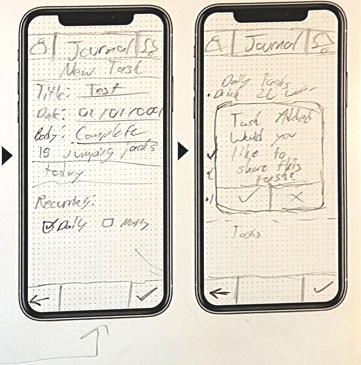 Journal
New Task
Title: Test
Date: 01/01/0001
Body: Complete
15 jumping jacks
today
Recurring:
Daily
Journal
Daily Tasks
Drink 2L water
Task Added
Would you
like to
share this
task?
Tasks